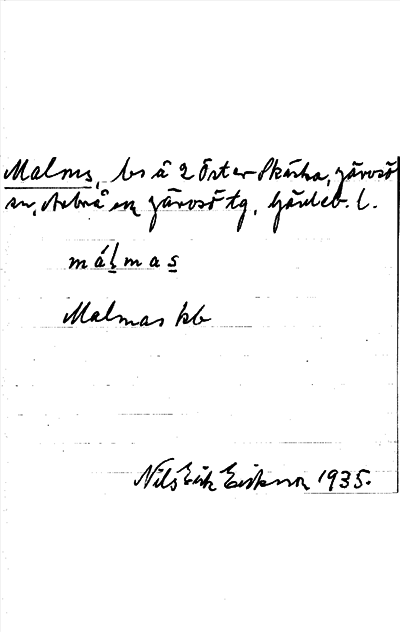 Malms, bs å 2 Öster Skärka, Järvsö
sn, Arbrå o. Järvsö tg, Gävleb. l.
málmas
Malmas kb
Nils Erik Eriksson 1935.